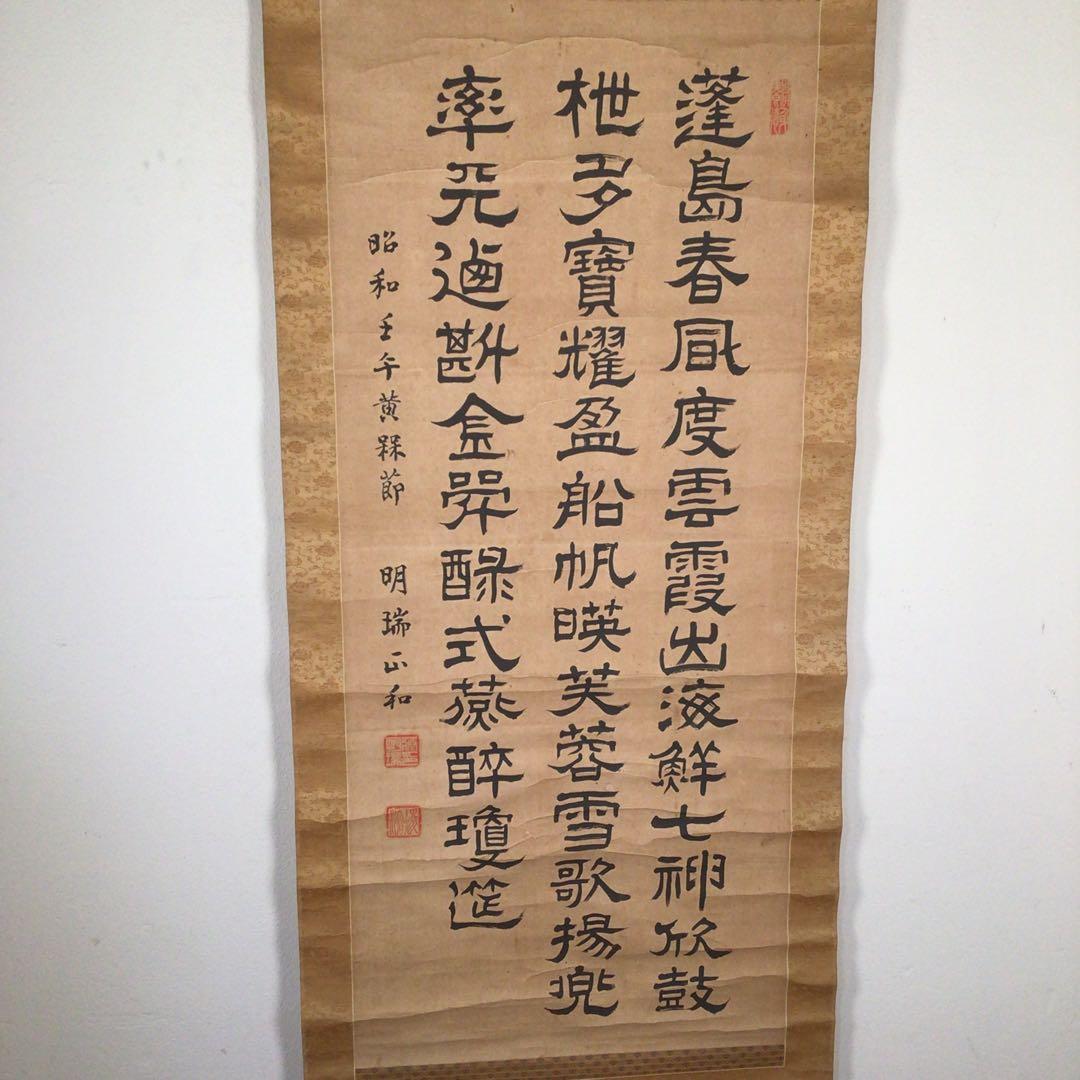 蓬島春風度雲霞出海鮮七神欣鼓
枻多寶耀盈船帆暎芙蓉雪歌揚兜
率天逌斟金斝醁式燕醉瓊筵
昭和壬午黄槑節　明瑞正和